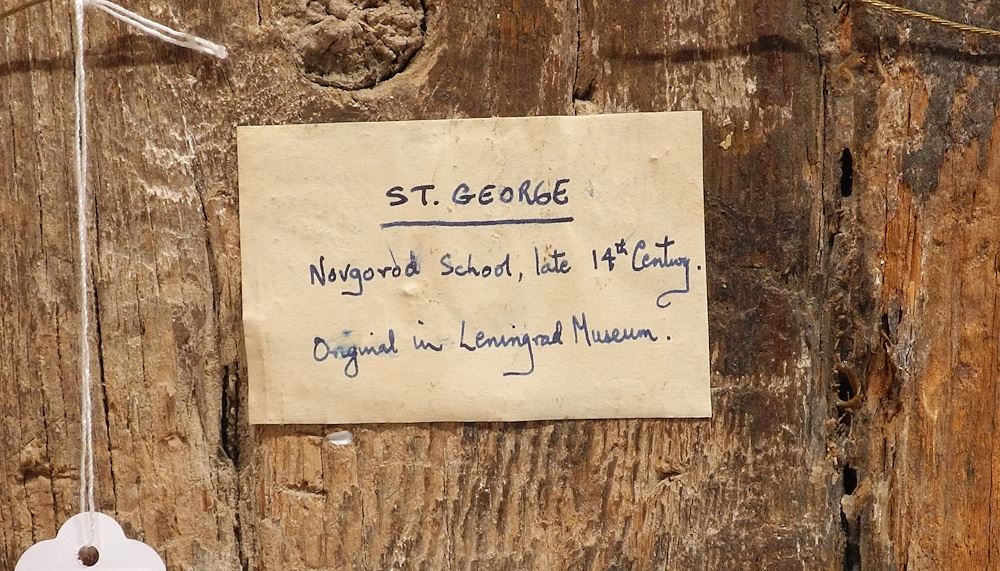 ST. GEORGE
Novgorod School, late 14th Century.
Original in Leningrad Museum.